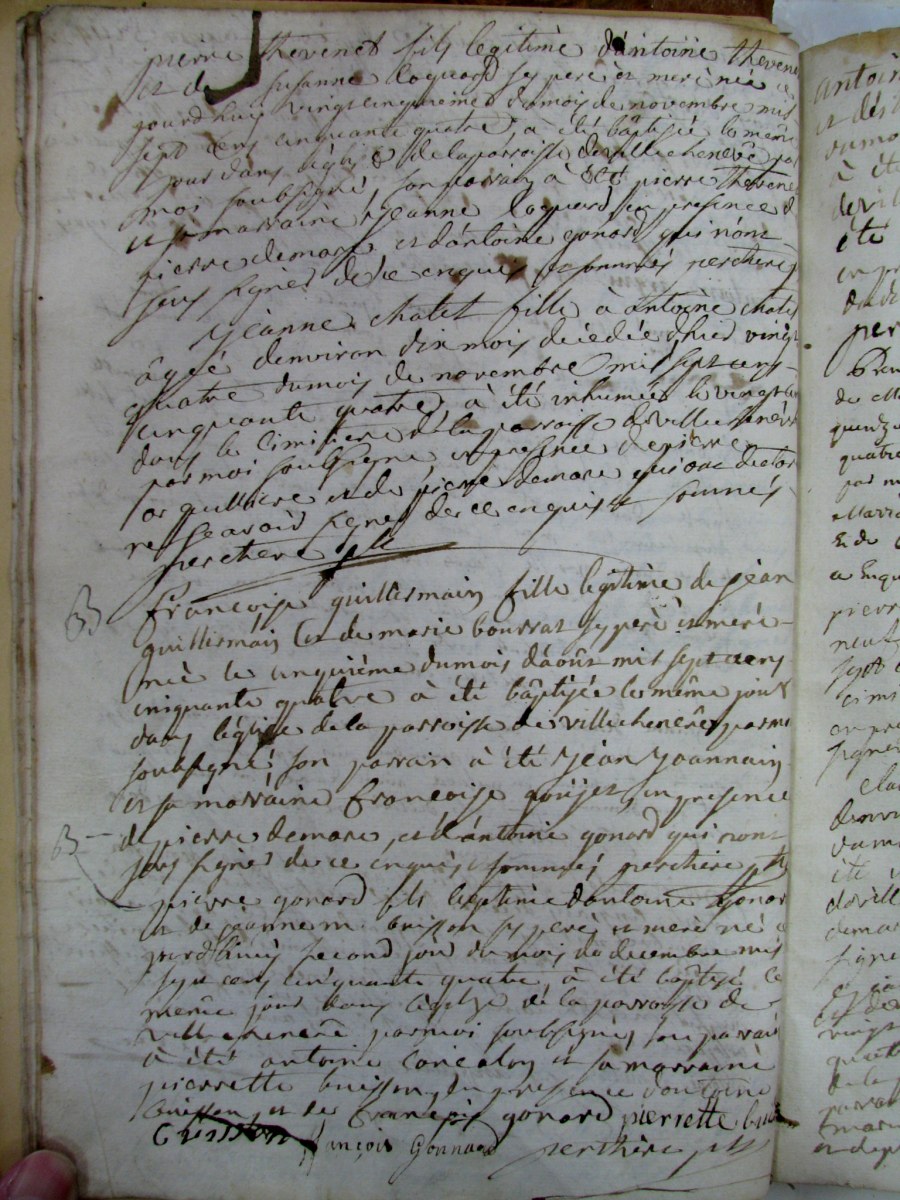 pierre thevenet fils legitime d'antoine thevene
et de susanne laquard sy pere et mere née a
jourdhuis vingt cinquieme du mois de novembre mil
sept cens cinquante quatre, a été bâptisée le mème
jour dans l'église de la parroisse de villechenêve par
moi soubsigné, son parrain a été pierre thevene
et sa marraine jeanne laquard en presence de
pierre demare et d'antoine gonard qui n'ont
sceus signer de ce enquis et sommés perchere
jéanne chatet fille à antoine chatet
âgée d'environ dix mois décédée hier vingt
quatre du mois de novembre mil sept cens
cinquante quatre, a été inhumée le vingt
dans le cimitiere de la parroisse de villechenêve
par moi soubsigné en presence de pierre
et de pierre demare qui ont declar
ne sçavoir signer de ce enquis et sommés
perchere ptr
francoise guillermain fille legitime de jéan
guillermain et de marie bourrat sy pere et mere
née le cinquième du mois d'août mil sept cens
cinquante quatre a été bâptisée le même jour
dans l'église de la parroisse de villechenêve par moi
soubsigné, son parrain à été jéan joannain
et sa marraine francoise goujet, en presence
de pierre demare, et d'antoine gonard qui n'ont
sceus signer de ce enquis, sommés perchere ptr
pierre gonard fils legitime d'antoine gonar
et de jéanne m. buisson sy pere et mere né a
jourdhuis second jour du mois de decembre mil
sept cens cinquante quatre à été bâptisé le
même jour dans l'eglise de la parroisse de
villechenêve par moi soubsigné, son parrai
à été antoine et sa marraine
pierrette buisson, en presence d'antoine
buisson, et de françois gonard pierrette bui
françois Gonnard perchere ptr